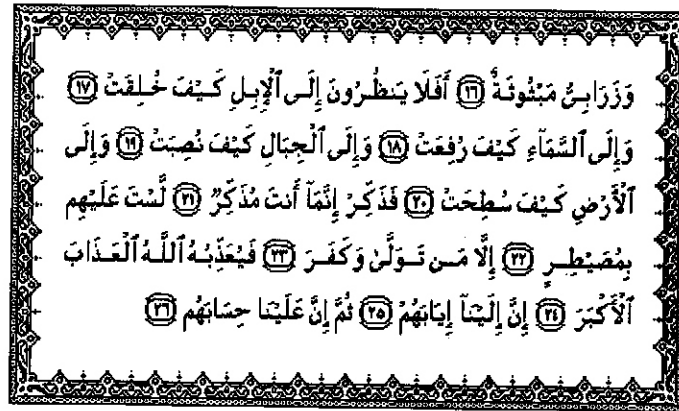 وَزَرَابِىُّ مَبْثُوثَةٌ ١٦ أَفَلَا يَنظُرُونَ إِلَى ٱلْإِبِلِ كَيْفَ خُلِقَتْ ١٧
وَإِلَى ٱلسَّمَآءِ كَيْفَ رُفِعَتْ ١٨ وَإِلَى ٱلْجِبَالِ كَيْفَ نُصِبَتْ ١٩ وَإِلَى
ٱلْأَرْضِ كَيْفَ سُطِحَتْ ٢٠ فَذَكِّرْ إِنَّمَآ أَنتَ مُذَكِّرٌ ٢١ لَّسْتَ عَلَيْهِم
بِمُصَيْطِرٍ ٢٢ إِلَّا مَن تَوَلَّىٰ وَكَفَرَ ٢٣ فَيُعَذِّبُهُ ٱللَّهُ ٱلْعَذَابَ
ٱلْأَكْبَرَ ٢٤ إِنَّ إِلَيْنَآ إِيَابَهُمْ ٢٥ ثُمَّ إِنَّ عَلَيْنَا حِسَابَهُم ٢٦